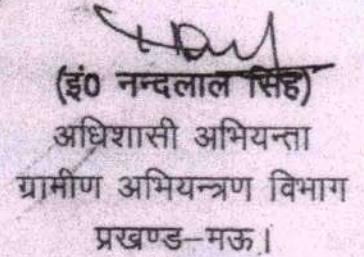 (इं0 नन्दलाल सिंह)
अधिशासी अभियन्ता
ग्रामीण अभियन्त्रण विभाग
प्रखण्ड–मऊ।